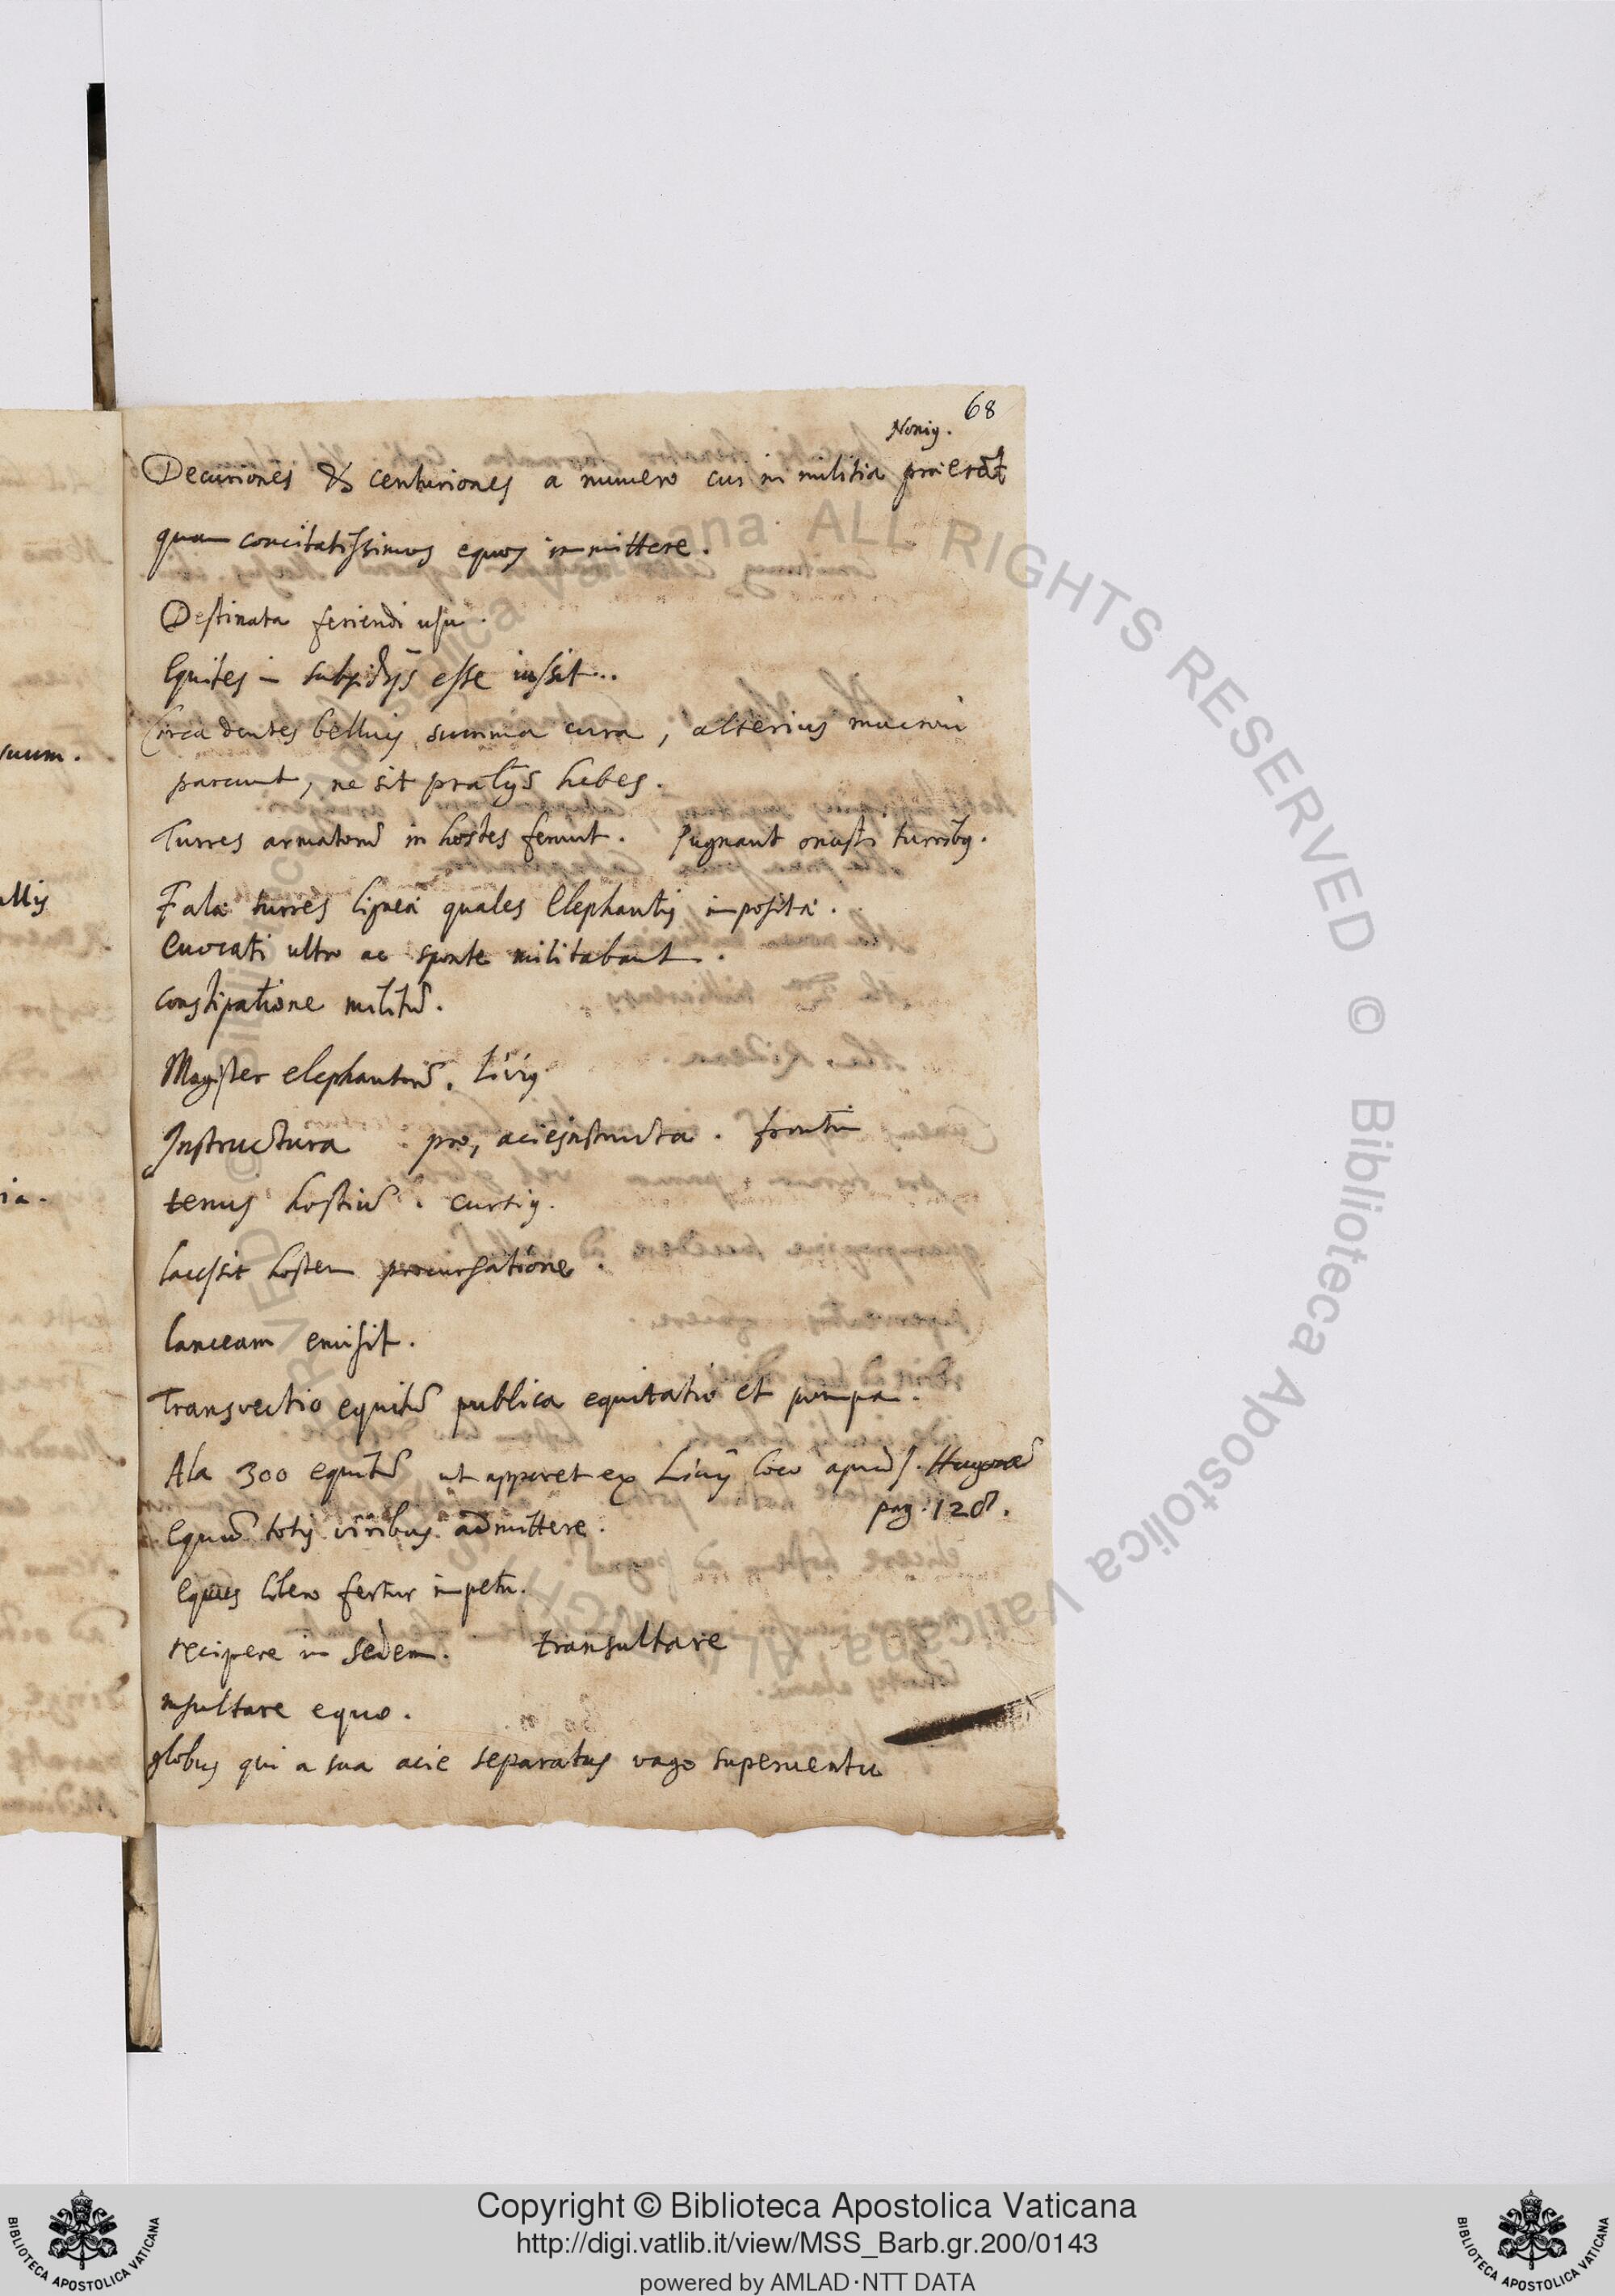 68
Noniꝰ.
Decuriones & centuriones a numero cui in militia praeerāt
quam concitatissimos equos immittere.
Destinata feriendi usu.
Equites in subsidijs esse iussit..
Circa dentes belluis summa cura, alterius mucroni
parcunt, ne sit praelijs hebes.
Turres armatorū in hostes ferunt. Pugnant onusti turribꝰ.
Falae turres ligneae quales Elephantis impositae.
Evocati ultro ac sponte militabant.
constipatione militū.
Magister elephantorū. Liviꝰ.
Instructura pro, acies instructa. frontin
tenus hostiū. curtiꝰ.
lacessit hostem procursatione.
lanceam emisit.
Transvectio equitū publica equitatio et pompa.
Ala 300 equitū ut apparet ex Livij loco apud
pag. 128.
Equū totis viribus admittere.
equus libero fertur impetu.
recipere in sedem. transultare
insultare equo.
globus qui a sua acie separatus vago superventu
suum.
ia.
Copyright © Biblioteca Apostolica Vaticana
http://digi.vatlib.it/view/MSS_Barb.gr.200/0143
powered by AMLAD·NTT DATA
BIBLIOTECA APOSTOLICA VATICANA
BIBLIOTECA APOSTOLICA VATICANA